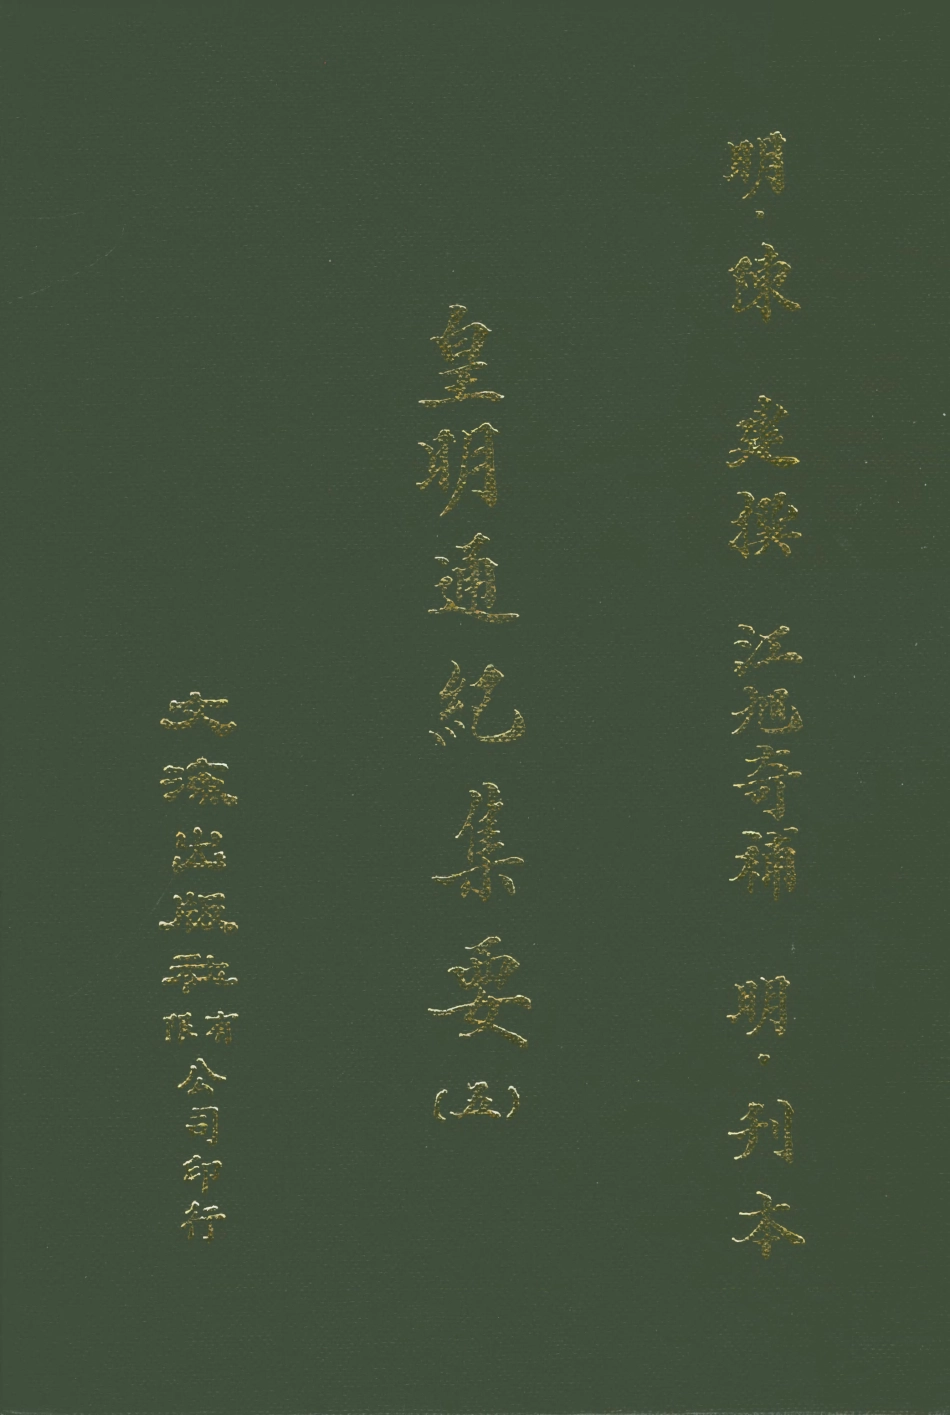 明・陳 建撰 江旭奇補 明・刊本
皇明通紀集要(五)
文海出版社有限公司印行